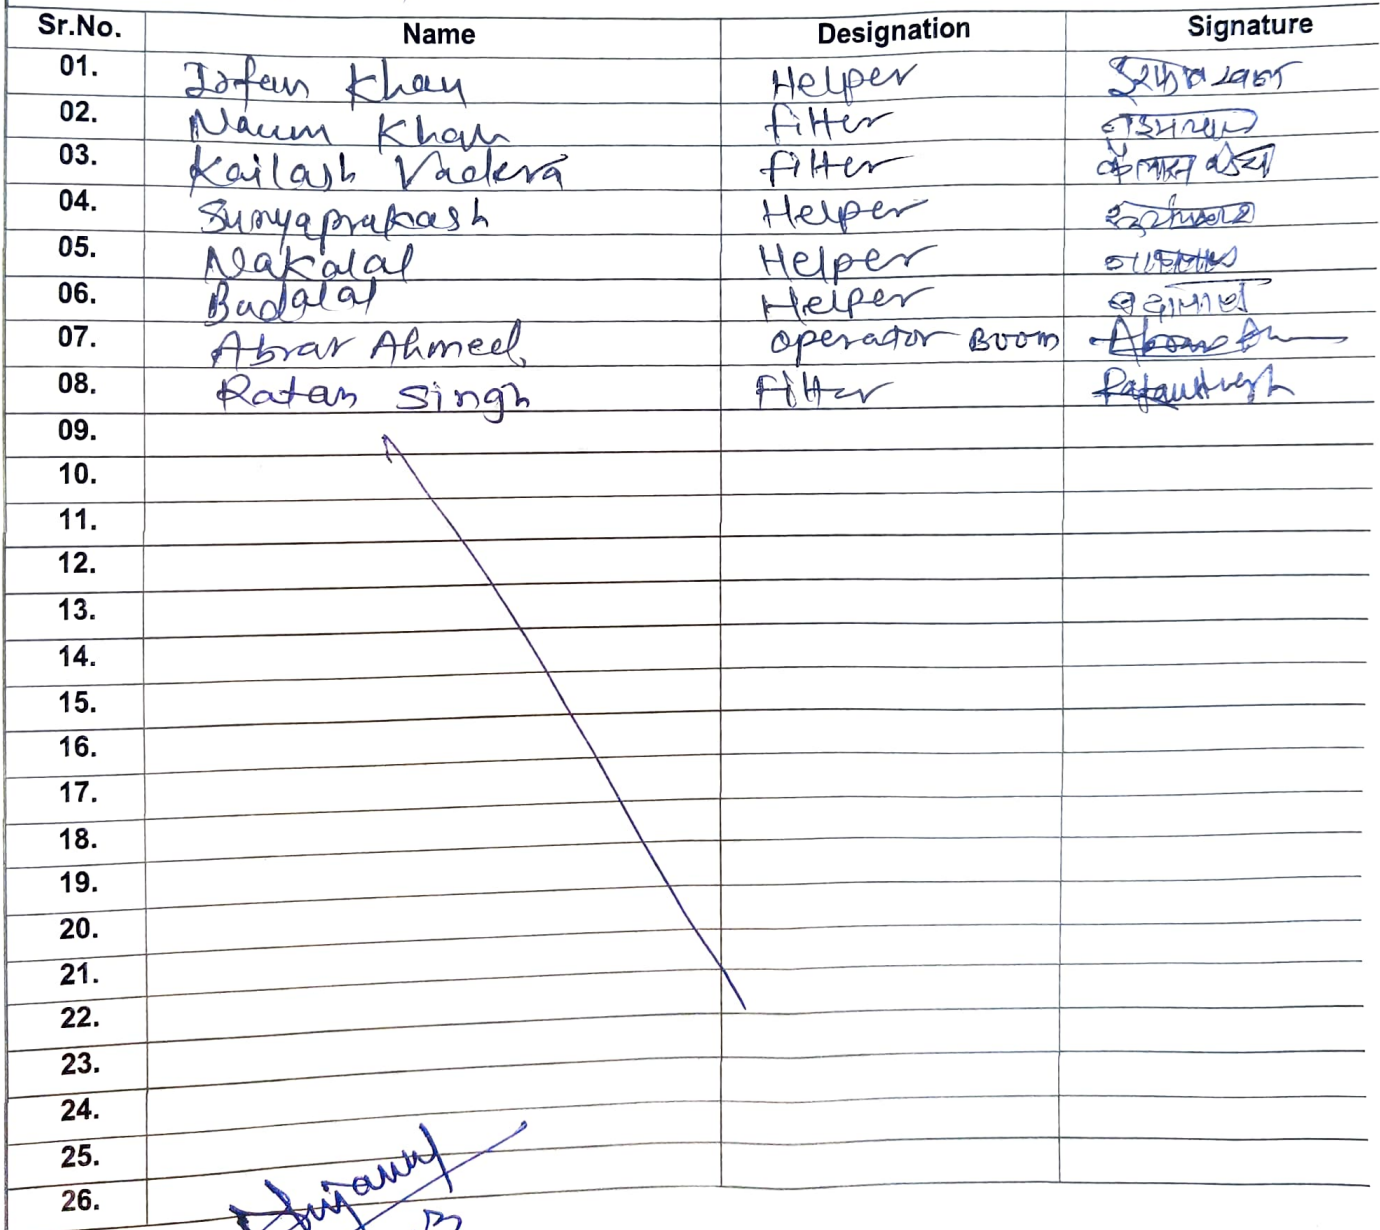 Sr.No. Name Designation Signature
01. Irfan Khan Helper इरफान खान
02. Naum Khan fitter
03. Kailash Vadera fitter कैलाश
04. Suryaprakash Helper
05. Nakalal Helper
06. Badalal Helper
07. Abrar Ahmed Operator Boom
08. Ratan Singh Fitter Ratan Singh
09.
10.
11.
12.
13.
14.
15.
16.
17.
18.
19.
20.
21.
22.
23.
24.
25.
26.